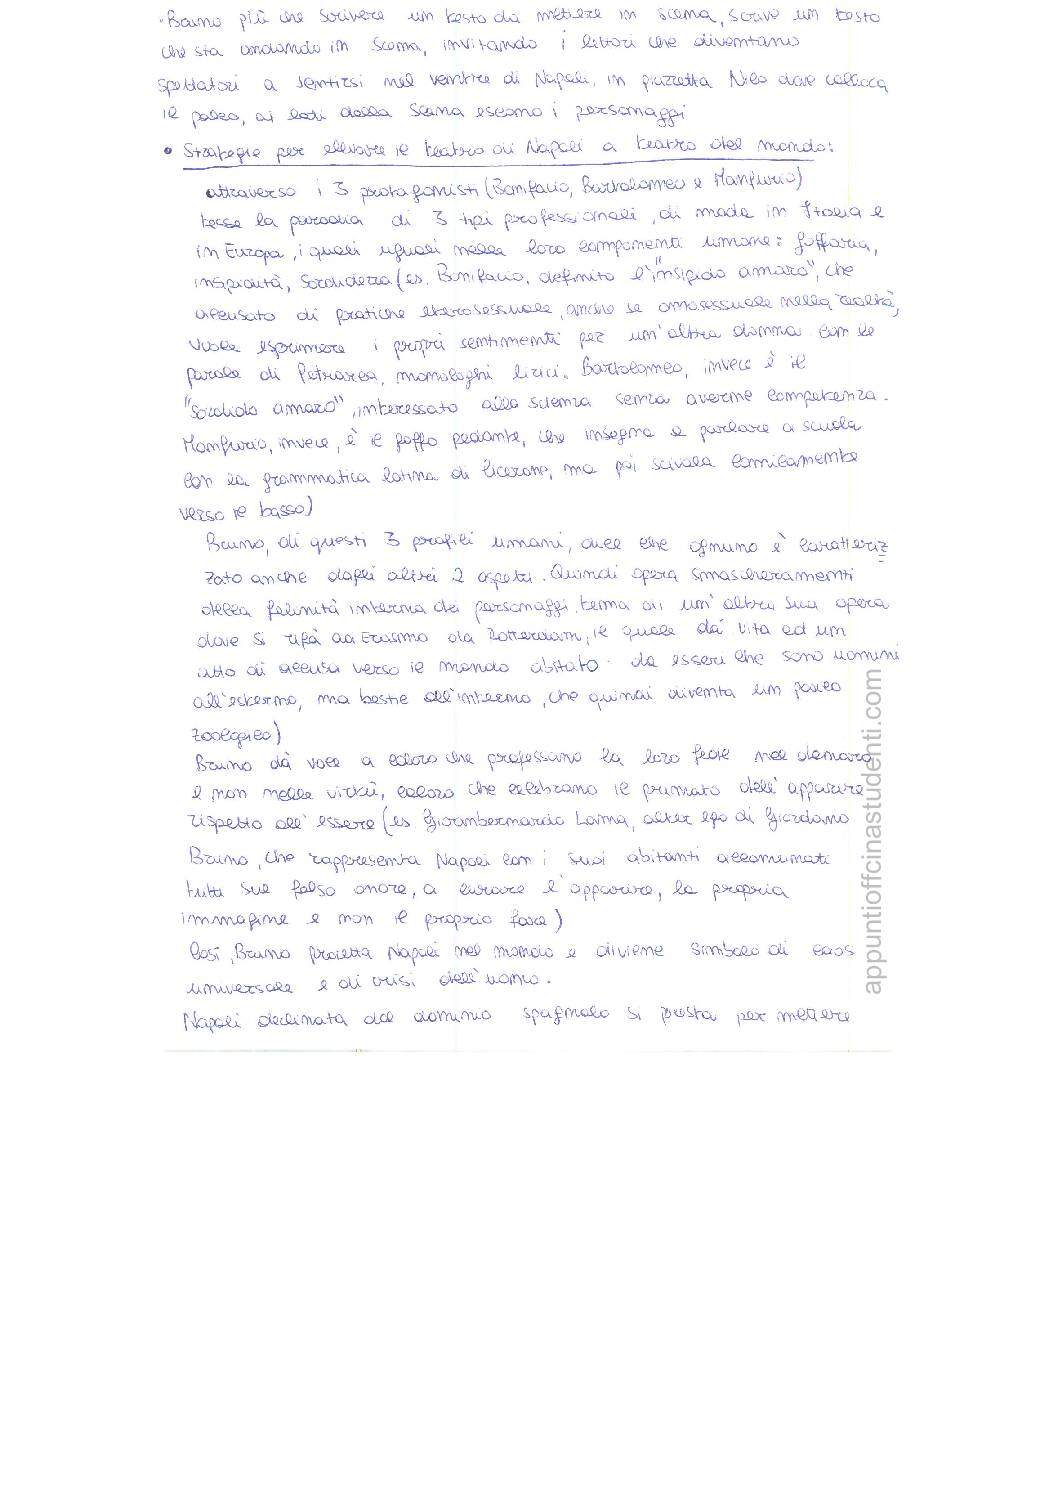 ·Bruno più che scrivere un testo da mettere in scena, scrive un testo
che sta andando in scena, invitando i lettori che diventano
spettatori a sentirsi nel ventre di Napoli, in piazzetta Nilo dove colloca
il palco, ai lati della scena escono i personaggi
• Strategie per elevare il teatro di Napoli a teatro del mondo:
attraverso i 3 protagonisti (Bonifacio, Bartolomeo e Manfurio)
tesse la parodia di 3 tipi professionali, di moda in Italia e
in Europa, i quali uguali nelle loro componenti umane: goffaria,
insipidità, sordidezza (es. Bonifacio, definito l'"insipido amaro", che
accusato di pratiche eterosessuale, anche se omosessuale nella realtà,
vuole esprimere i propri sentimenti per un'altra donna con le
parole di Petrarca, monologhi lirici. Bartolomeo, invece è il
"sordido amaro", interessato alla scienza senza averne competenza.
Manfurio, invece, è il goffo pedante, che insegna a parlare a scuola
con la grammatica latina di Cicerone, ma poi scivola comicamente
verso il basso)
Bruno, di questi 3 profili umani, dice che ognuno è caratteriz
zato anche dagli altri 2 aspetti. Quindi opera smascheramenti
della ferinità interna dei personaggi, tema di un'altra sua opera
dove si rifà ad Erasmo da Rotterdam, il quale dà vita ad un
atto di accusa verso il mondo abitato da esseri che sono uomini
all'esterno, ma bestie all'interno, che quindi diventa un parco
zoologico)
Bruno dà voce a coloro che professano la loro fede nel denaro
e non nelle virtù, coloro che celebrano il primato dell'apparire
rispetto all'essere (es Gioanbernardo Lama, alter ego di Giordano
Bruno, che rappresenta Napoli con i suoi abitanti accomunati
tutti sul falso onore, a curare l'apparire, la propria
immagine e non il proprio fare)
Così, Bruno proietta Napoli nel mondo e diviene simbolo di caos
universale e di crisi dell'uomo.
Napoli declinata dal dominio spagnolo si presta per mettere
appuntioffcinastudenti.com